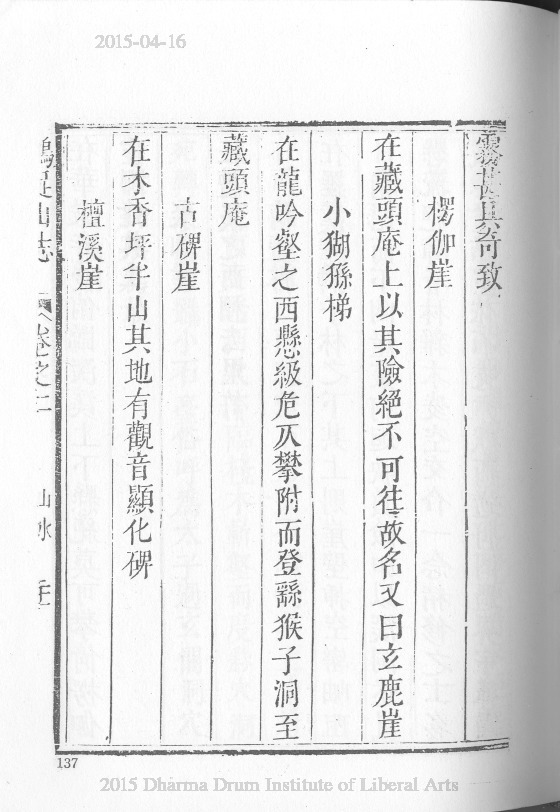 2015-04-16
霧甚具奇致
楞伽崖
在藏頭庵上以其險絕不可往故名又曰玄鹿崖
小猢猻梯
在龍吟壑之西懸級危仄攀附而登繇猴子洞至
藏頭庵
古碑崖
在木香坪半山其地有觀音顯化碑
檀溪崖
雞足山志 卷之二 山水
137
2015 Dharma Drum Institute of Liberal Arts